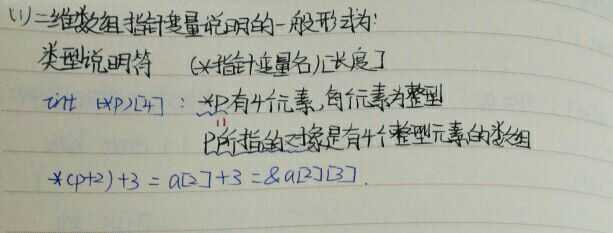 (1)二维数组指针变量说明的一般形式为:
类型说明符 (*指针变量名)[长度]
int (*p)[4] : *P有4个元素,每个元素为整型
"
P所指的对象是有4个整型元素的数组
*(p+2)+3 = a[2]+3 = &a[2][3].